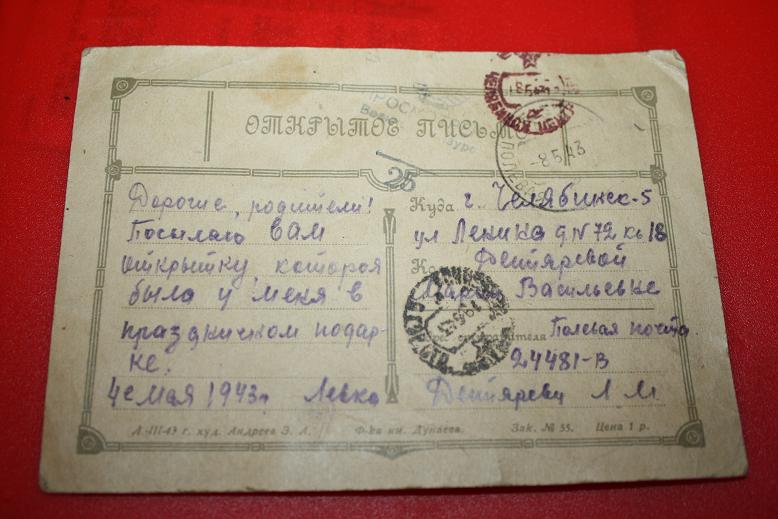 ОТКРЫТОЕ ПИСЬМО
-8.5.43
25
Дорогие, родители!
Посылаю вам
открытку, которая
была у меня в
праздничном подар-
ке.
4е мая 1943 г Левка
Куда г. Челябинск-5
ул Ленина д № 72 кв 18
Дегтяревой
Дарье Васильевне
Адрес отправителя Полевая почта
24481-В
Дегтяреву Л М
Д-III-43 г. худ. Андреев З. А. Ф-ка им. Дунаева. Зак. № 55. Цена 1 р.